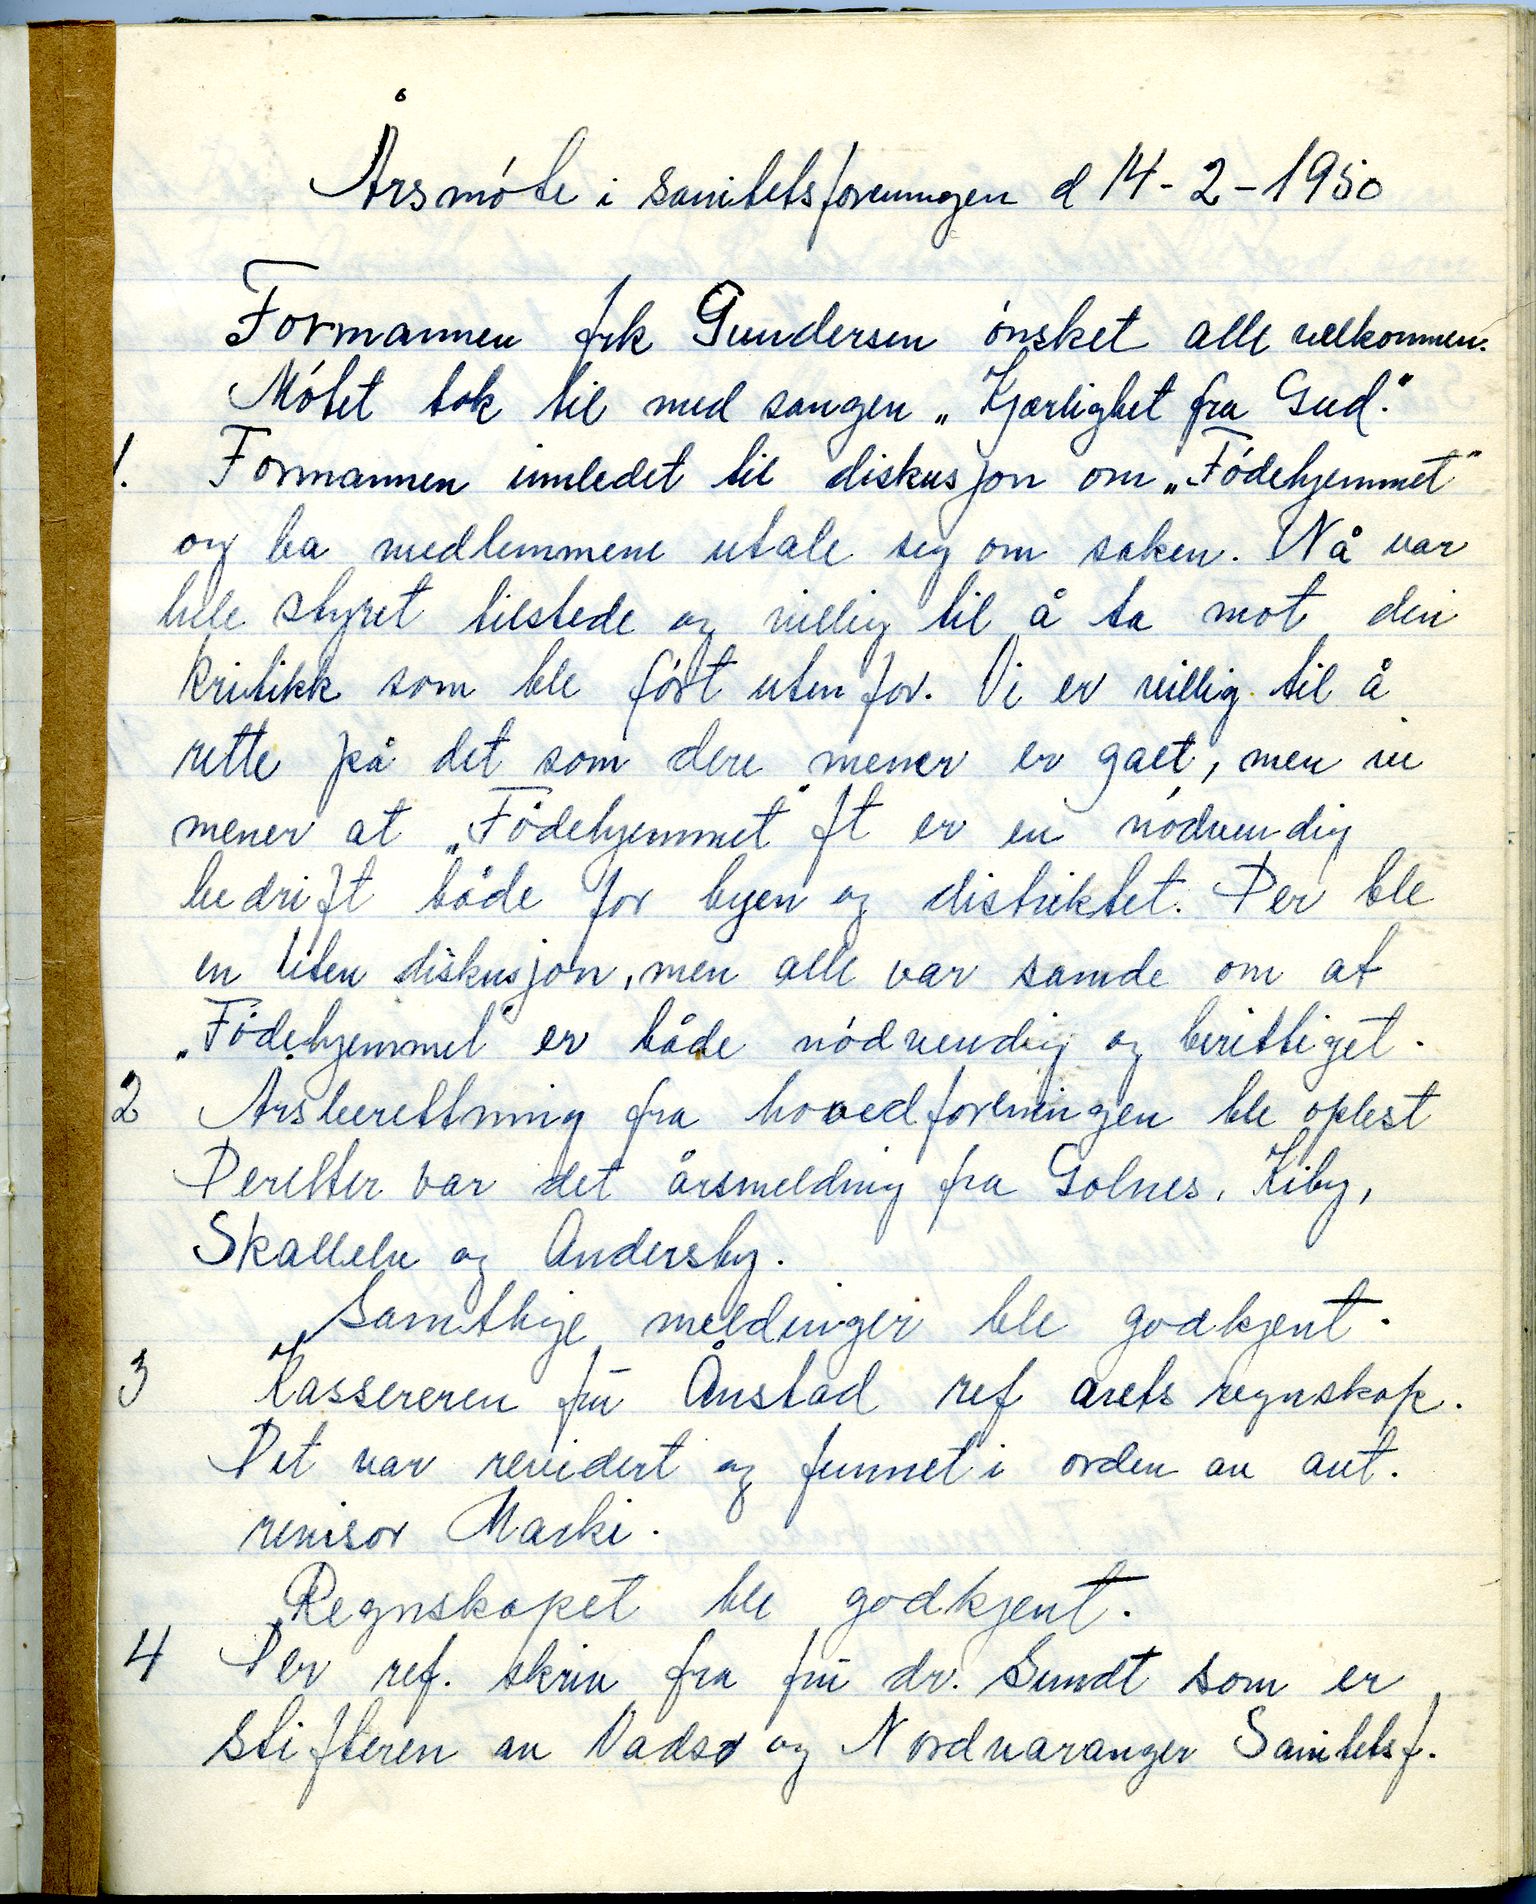 Årsmóte i sanitetsforeningen d 14-2-1950
Formannen frk Gundersen ónsket alle velkommen.
Mótet tok til med sangen „Kjærlighet fra Gud."
1. Formannen innledet til diskusjon om „Fódehjemmet"
og ba medlemmene utale seg om saken. Nå var
hele styret tilstede og villig til å ta mot den
kritikk som ble fórt utenfor. Vi er villig til å
rette på det som dere mener er galt, men vi
mener at „Fódehjemmet" ft er en nódvendig
bedrift både for byen og distriktet. Der ble
en liten diskusjon, men alle var samde om at
„Fódehjemmet" er både nódvendig og berettiget.
2 Årsberettning fra hovedforeningen ble oplest
Deretter var det årsmelding fra Golnes, Kiby,
Skallelv og Andersby.
Samtlige meldinger ble godkjent.
3 Kassereren frú Ånstad ref arets regnskap.
Det var revidert og funnet i orden av aut.
revisor Marki.
Regnskapet ble godkjent.
4 Der ref. skriv fra frú dr. Sundt som er
stifteren av Vadsø og Nordvaranger Sanitetsf.